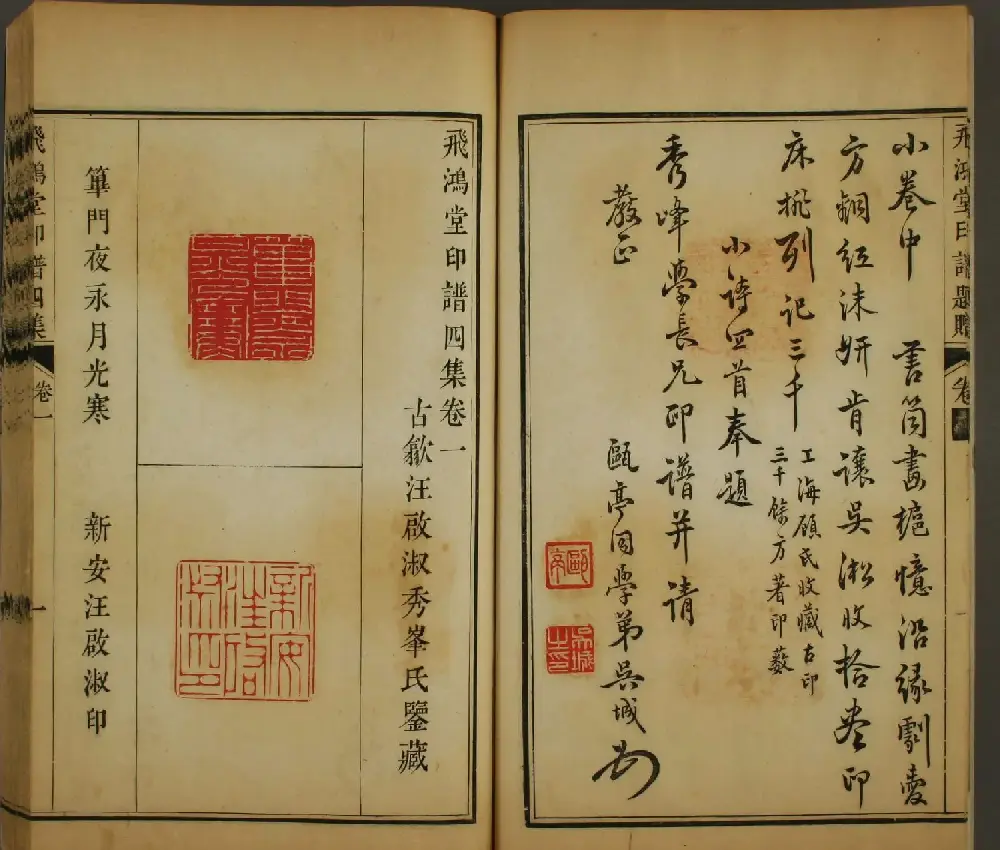 飛鴻堂印譜題贈 卷
小卷中 書筒畫 憶沿緣劇愛
方銅紅沫妍肯讓吳淞收拾盡印
床排列記三千
工海顧氏收藏古印
三千餘方著印藪
小詩四首奉題
秀峰學長兄印譜并請
教正 甌亭同學弟吳城
甌亭
吳城之印
飛鴻堂印譜四集卷一
古歙汪啟淑秀峯氏鑒藏
新安汪啟淑印
篳門夜永月光寒 新安汪啟淑印
飛鴻堂印譜四集 卷一 一